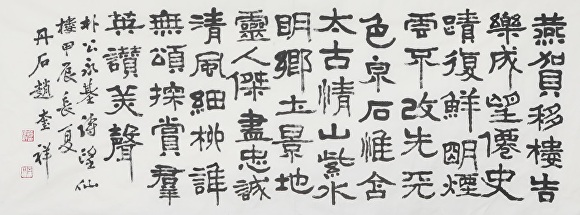 燕賀移樓吉
樂成望僊史
蹟復鮮明煙
雲不改先天
色泉石惟含
太古情山紫水
明鄉土景地
靈人傑盡忠誠
清風細柳誰
無頌探賞羣
英讚美聲
朴公永基詩望仙
樓甲辰長夏
丹石趙奎祥